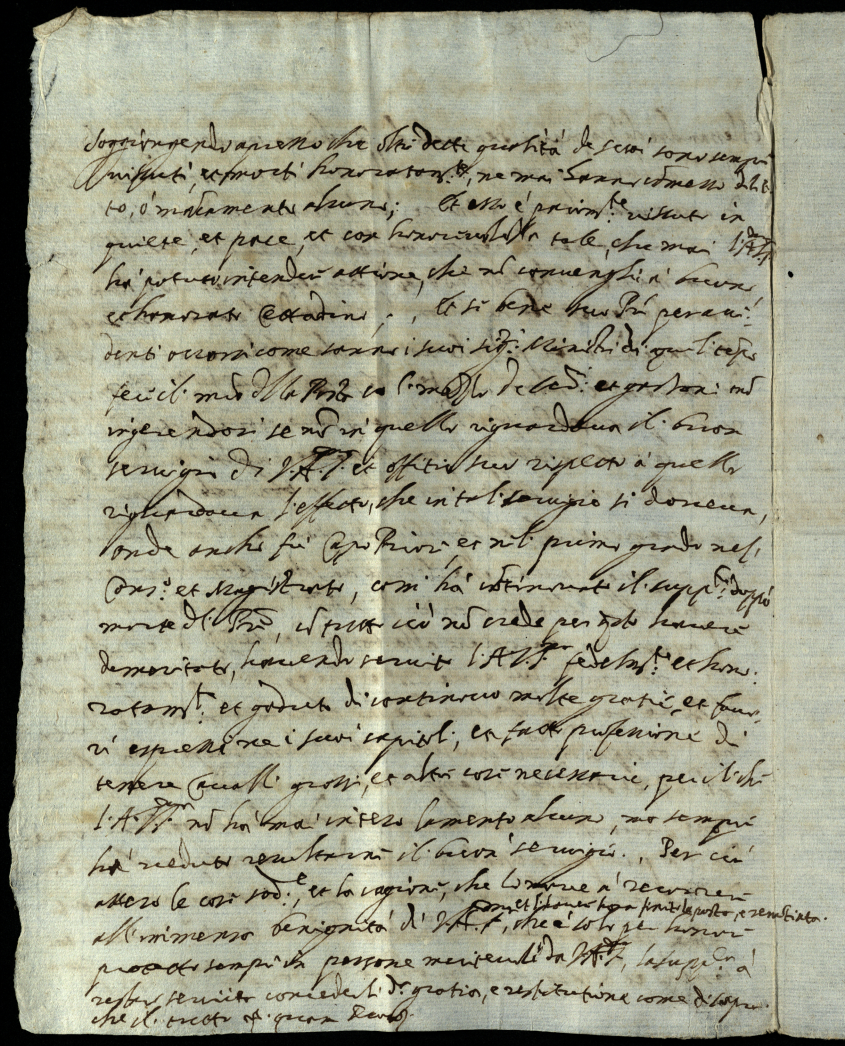 Soggiongendo apresso che oltre dette qualità de suoi sono sempre
vissuti, et morti honoratam.te, ne mai hanno comesso delit
to, ò mancamento alcuno; Et esso è parim.te vissuto in
quiete, et pace, et con honorevolezza tale, che mai l'A.V.
hà potuto intender attione, che nō convenghi à buono
et honorato Cittadino. Et se bene suo P.re per acci:
denti occorsi come sanno i suoi sig.ri Ministri di quel tempo
fece il
ingerendosi se nō in quello riguardava il buon
servigio di V.A.S. et offitio suo rispetto à quello
riguardava l'effetto, che in tal servigio si doveva,
onde anche fù Capo Priore, et nel primo grado nel
Cons.o et Magistrato, come hà cōtinovato il supp.te doppò
morte del P.re, cō tutto ciò nō crede per q.to havere
demeritato, havendo servito l'A.V.S. fedelm.te et hono:
ratam.te et goduto di continovo molte gratie, et favo:
ri espresse ne i suoi capitoli, et fatto professione di
tenere Cavalli grossi, et altre cose necessarie, per il che
l'A.V.S. nō hà mai inteso lamento alcuno, ma sempre
hà veduto resultarne il buon servigio. Per ciò
atteso le cose sod.e, et la cagione, che lo move à ricorrere
all'immensa benignità di V.A.S., che è solo per
sempre in persone meritevoli da V.A.S., la supp.ca à
restar servita concederli d.a gratia, e restitutione come di sopra
che il tutto et. quam Deus.